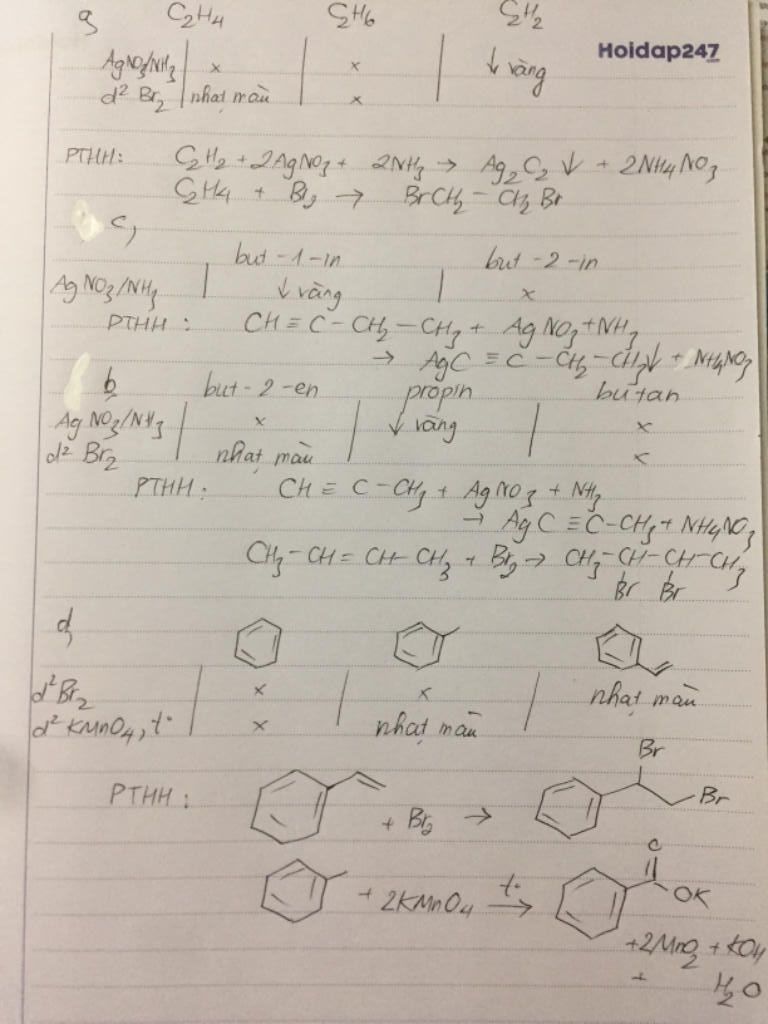 a, C₂H₄ C₂H₆ C₂H₂
Hoidap247.com
AgNO₃/NH₃ x x ↓ vàng
d² Br₂ nhạt màu x
PTHH: C₂H₂ + 2AgNO₃ + 2NH₃ → Ag₂C₂ ↓ + 2NH₄NO₃
C₂H₄ + Br₂ → BrCH₂ - CH₂Br
c,
but-1-in but-2-in
AgNO₃/NH₃ ↓ vàng x
PTHH: CH ≡ C - CH₂ - CH₃ + AgNO₃ + NH₃
→ AgC ≡ C - CH₂ - CH₃↓ + NH₄NO₃
b, but-2-en propin butan
AgNO₃/NH₃ x ↓ vàng x
d² Br₂ nhạt màu x
PTHH: CH ≡ C - CH₃ + AgNO₃ + NH₃
→ AgC ≡ C-CH₃ + NH₄NO₃
CH₃-CH = CH-CH₃ + Br₂ → CH₃-CH-CH-CH₃
Br Br
d,
d²Br₂ x x nhạt màu
d² KMnO₄, t° x nhạt màu
Br
PTHH: + Br₂ → Br
O
+ 2KMnO₄ t° → OK
+2MnO₂ + KOH
+ H₂O